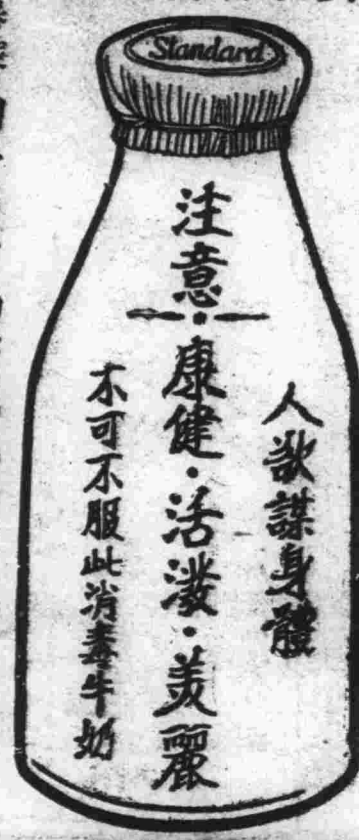 Standard
注意
人欲謀身體
康健・活潑・美麗
不可不服此消毒牛奶